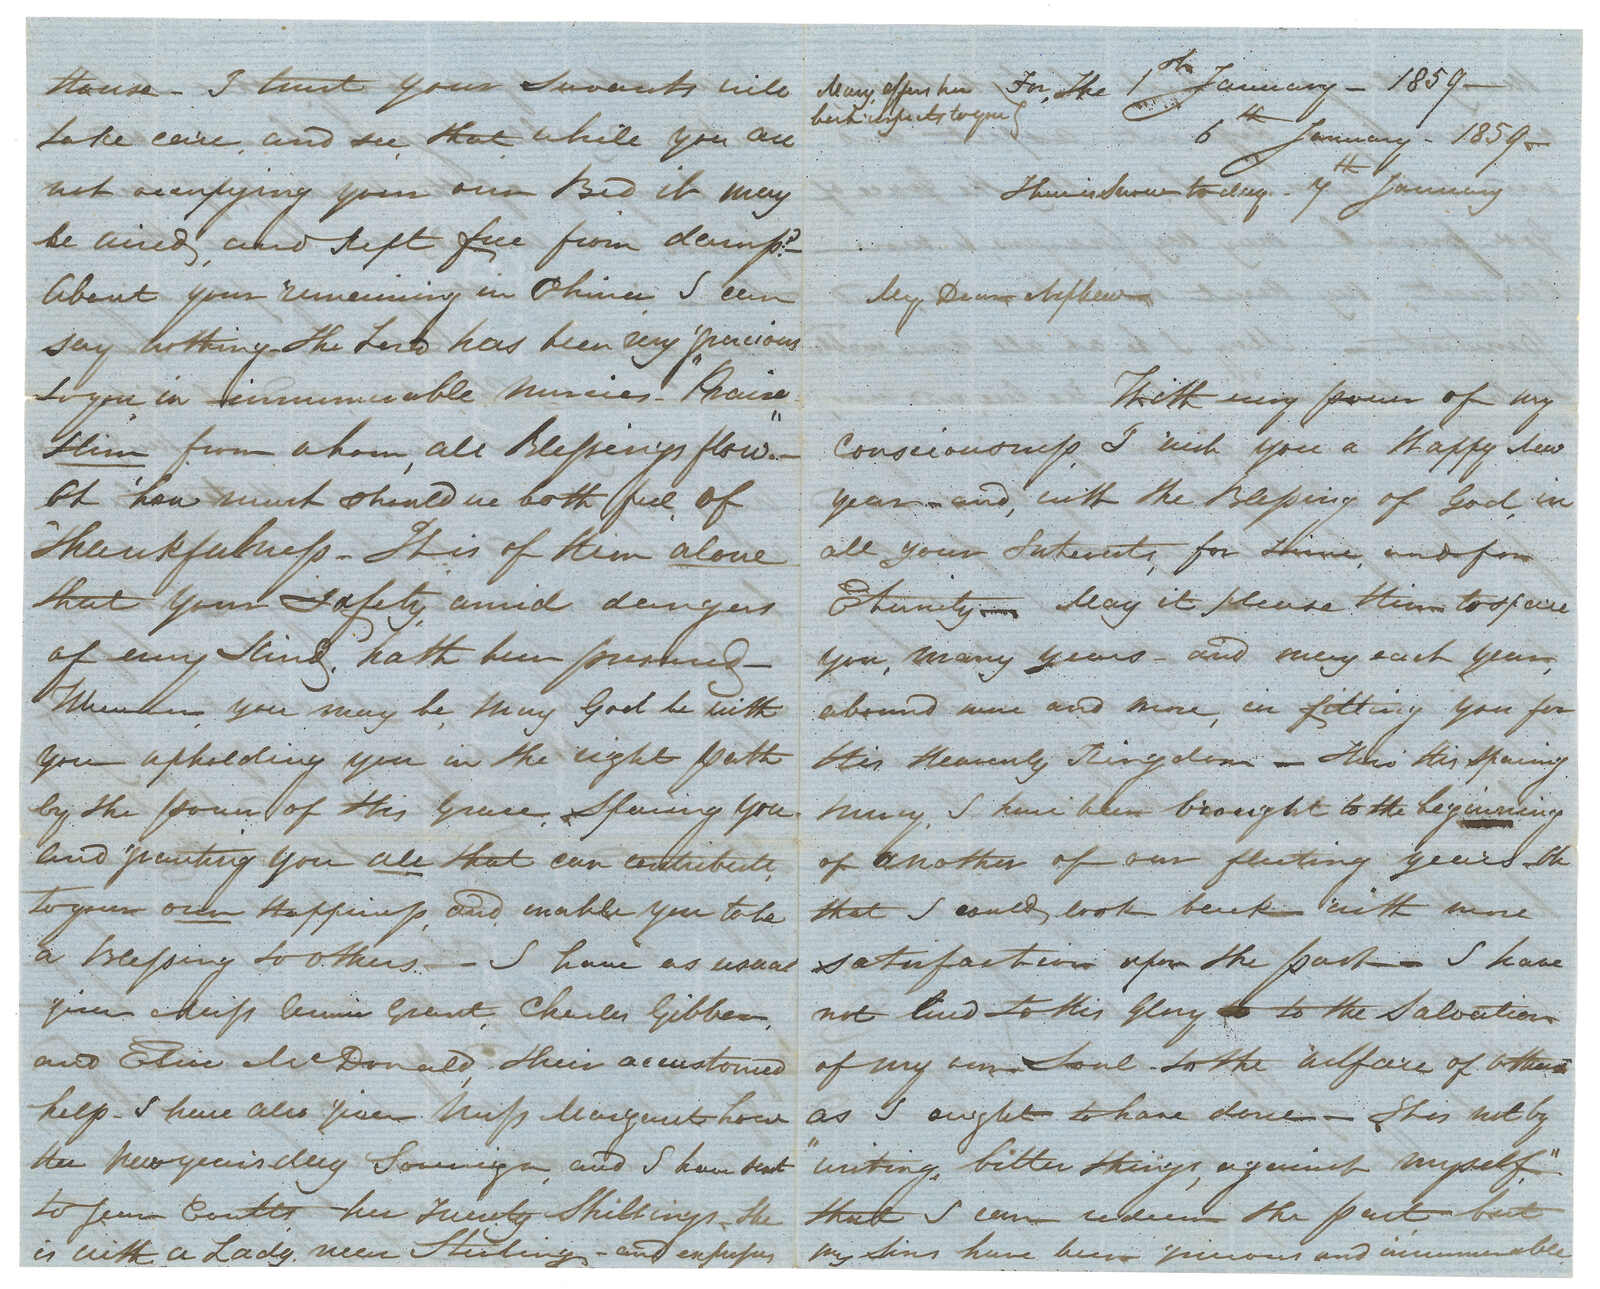 Mary, offers her
best respects to you
For, The 1st January - 1859 -
6th January - 1859 -
There is Snow to day - 7th January
My Dear Nephew -
With every power of my
Consciousness I wish you a Happy New
year - and, with the Blessing of God, in
all your Interests, for time, and for
Eternity - May it please Him to spare
you, many years - and may each year,
abound more and more, in fitting you for
His Heavenly Kingdom - Thro His sparing
mercy, I have been brought to the beginning
of another of our fleeting years - Oh
that I could, look back with more
satisfaction upon the past - I have
not lived to His Glory to the Salvation
of my own Soul - to the welfare of others
as I ought to have done - It is not by
"writing, bitter things, against myself,"
that I can redeem the past - but
my Sins have been grievous and innumerable
House - I trust your Servants will
take care, and see, that while you are
not occupying your own Bed it may
be aired, and kept free from damp? -
About your remaining in China I can
say nothing - the Lord has been very gracious
to you in innumerable mercies - "Praise
Him from whom, all Blessings flow" -
Oh how much should we both feel of
Thankfulness - It is of Him alone
that your safety, amid dangers
of every kind, hath been preserved -
Wherever, you may be, may God be with
you upholding you in the right path
by the power of His Grace, Sparing you
and granting you all that can contribute,
to your own Happiness, and enable you to be
a Blessing to others - I have as usual
given Miss Grant, Charles Gibbon,
and Elsie McDonald, their accustomed
help - I have also given Miss Margaret
her New years day Sovereign, and I have sent
to Jean Coutts, her Twenty Shillings - She
is with a Lady near Stirling - and expresses